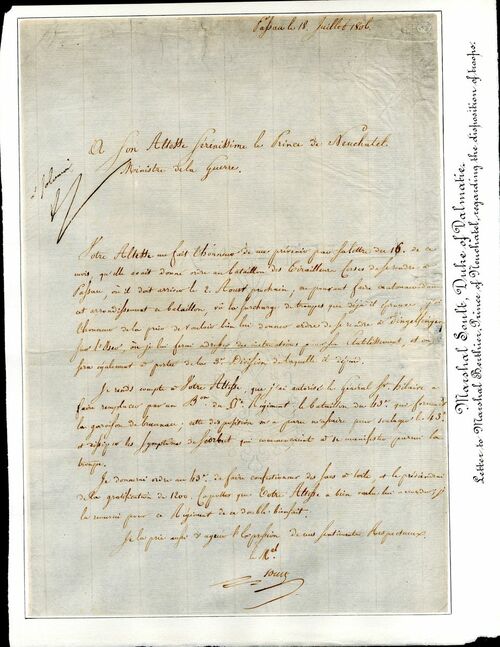 Passau le 18. Juillet 1806.
A Son Altesse Sérénissime le Prince de Neuchatel.
Ministre de la Guerre.
Votre Altesse me fait l'honneur de me prévenir par sa lettre du 16. de ce
mois, qu'elle avait donné ordre au bataillon des Tirailleurs Corses de se rendre à
Passau, où il doit arriver le 2. Aoust prochain, ne pouvant faire cantonner dans
cet arrondissement ce bataillon, vû la surcharge de troupes que déjà il éprouve, j'ai
l'honneur de la prier de vouloir bien lui donner ordre de se rendre à
sur l'Iser, où je lui ferai adresser des instructions pour son établissement, et on
sera également à portée de la 3e. Division de laquelle il dépend.
Je rends compte à Votre Altesse, que j'ai autorisé le général St. hilaire à
faire remplacer par un Bon. du Régiment, le bataillon du 43e. qui formait
la garnison de Braunau; cette disposition m'a paru nécessaire pour soulager le 43e.
et dissiper les symptômes de scorbut qui commençaient à se manifester parmi la
troupe.
Je donnerai ordre au 43e. de faire confectionner des sacs à toile, et le préviendrai
de la gratification de 1200. Capottes que Votre Altesse a bien voulu lui accorder; je
la remercie pour ce Régiment de ce double bienfait.
Je la prie aussi d'agréer l'Expression de mes sentimens Respectueux.
le Mal.
Soult
Marshal Soult, Duke of Dalmatie.
Letter to Marshal Berthier, Prince of Neuchatel, regarding the disposition of troops.